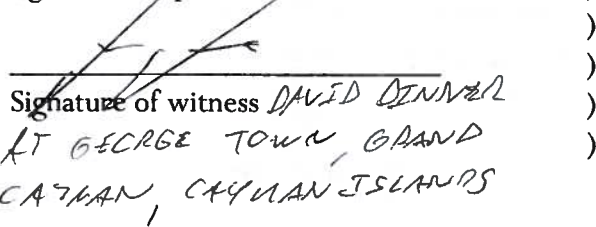 )
)
Signature of witness DAVID DINNER )
AT GEORGE TOWN, GRAND )
CAYMAN, CAYMAN ISLANDS